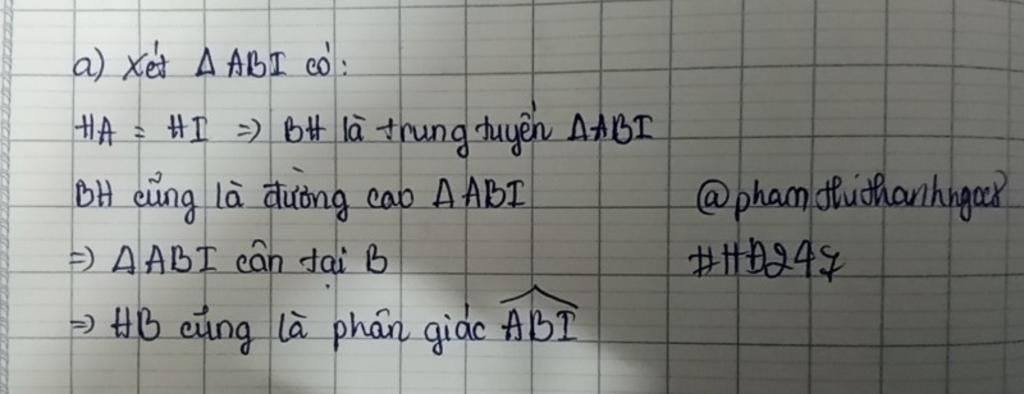 a) Xét Δ ABI có:
HA = HI => BH là trung tuyến ΔABI
BH cũng là đường cao ΔABI
@phamthithanhngoc8
=> ΔABI cân tại B
#HĐ247
=> HB cũng là phân giác \widehat{ABI}